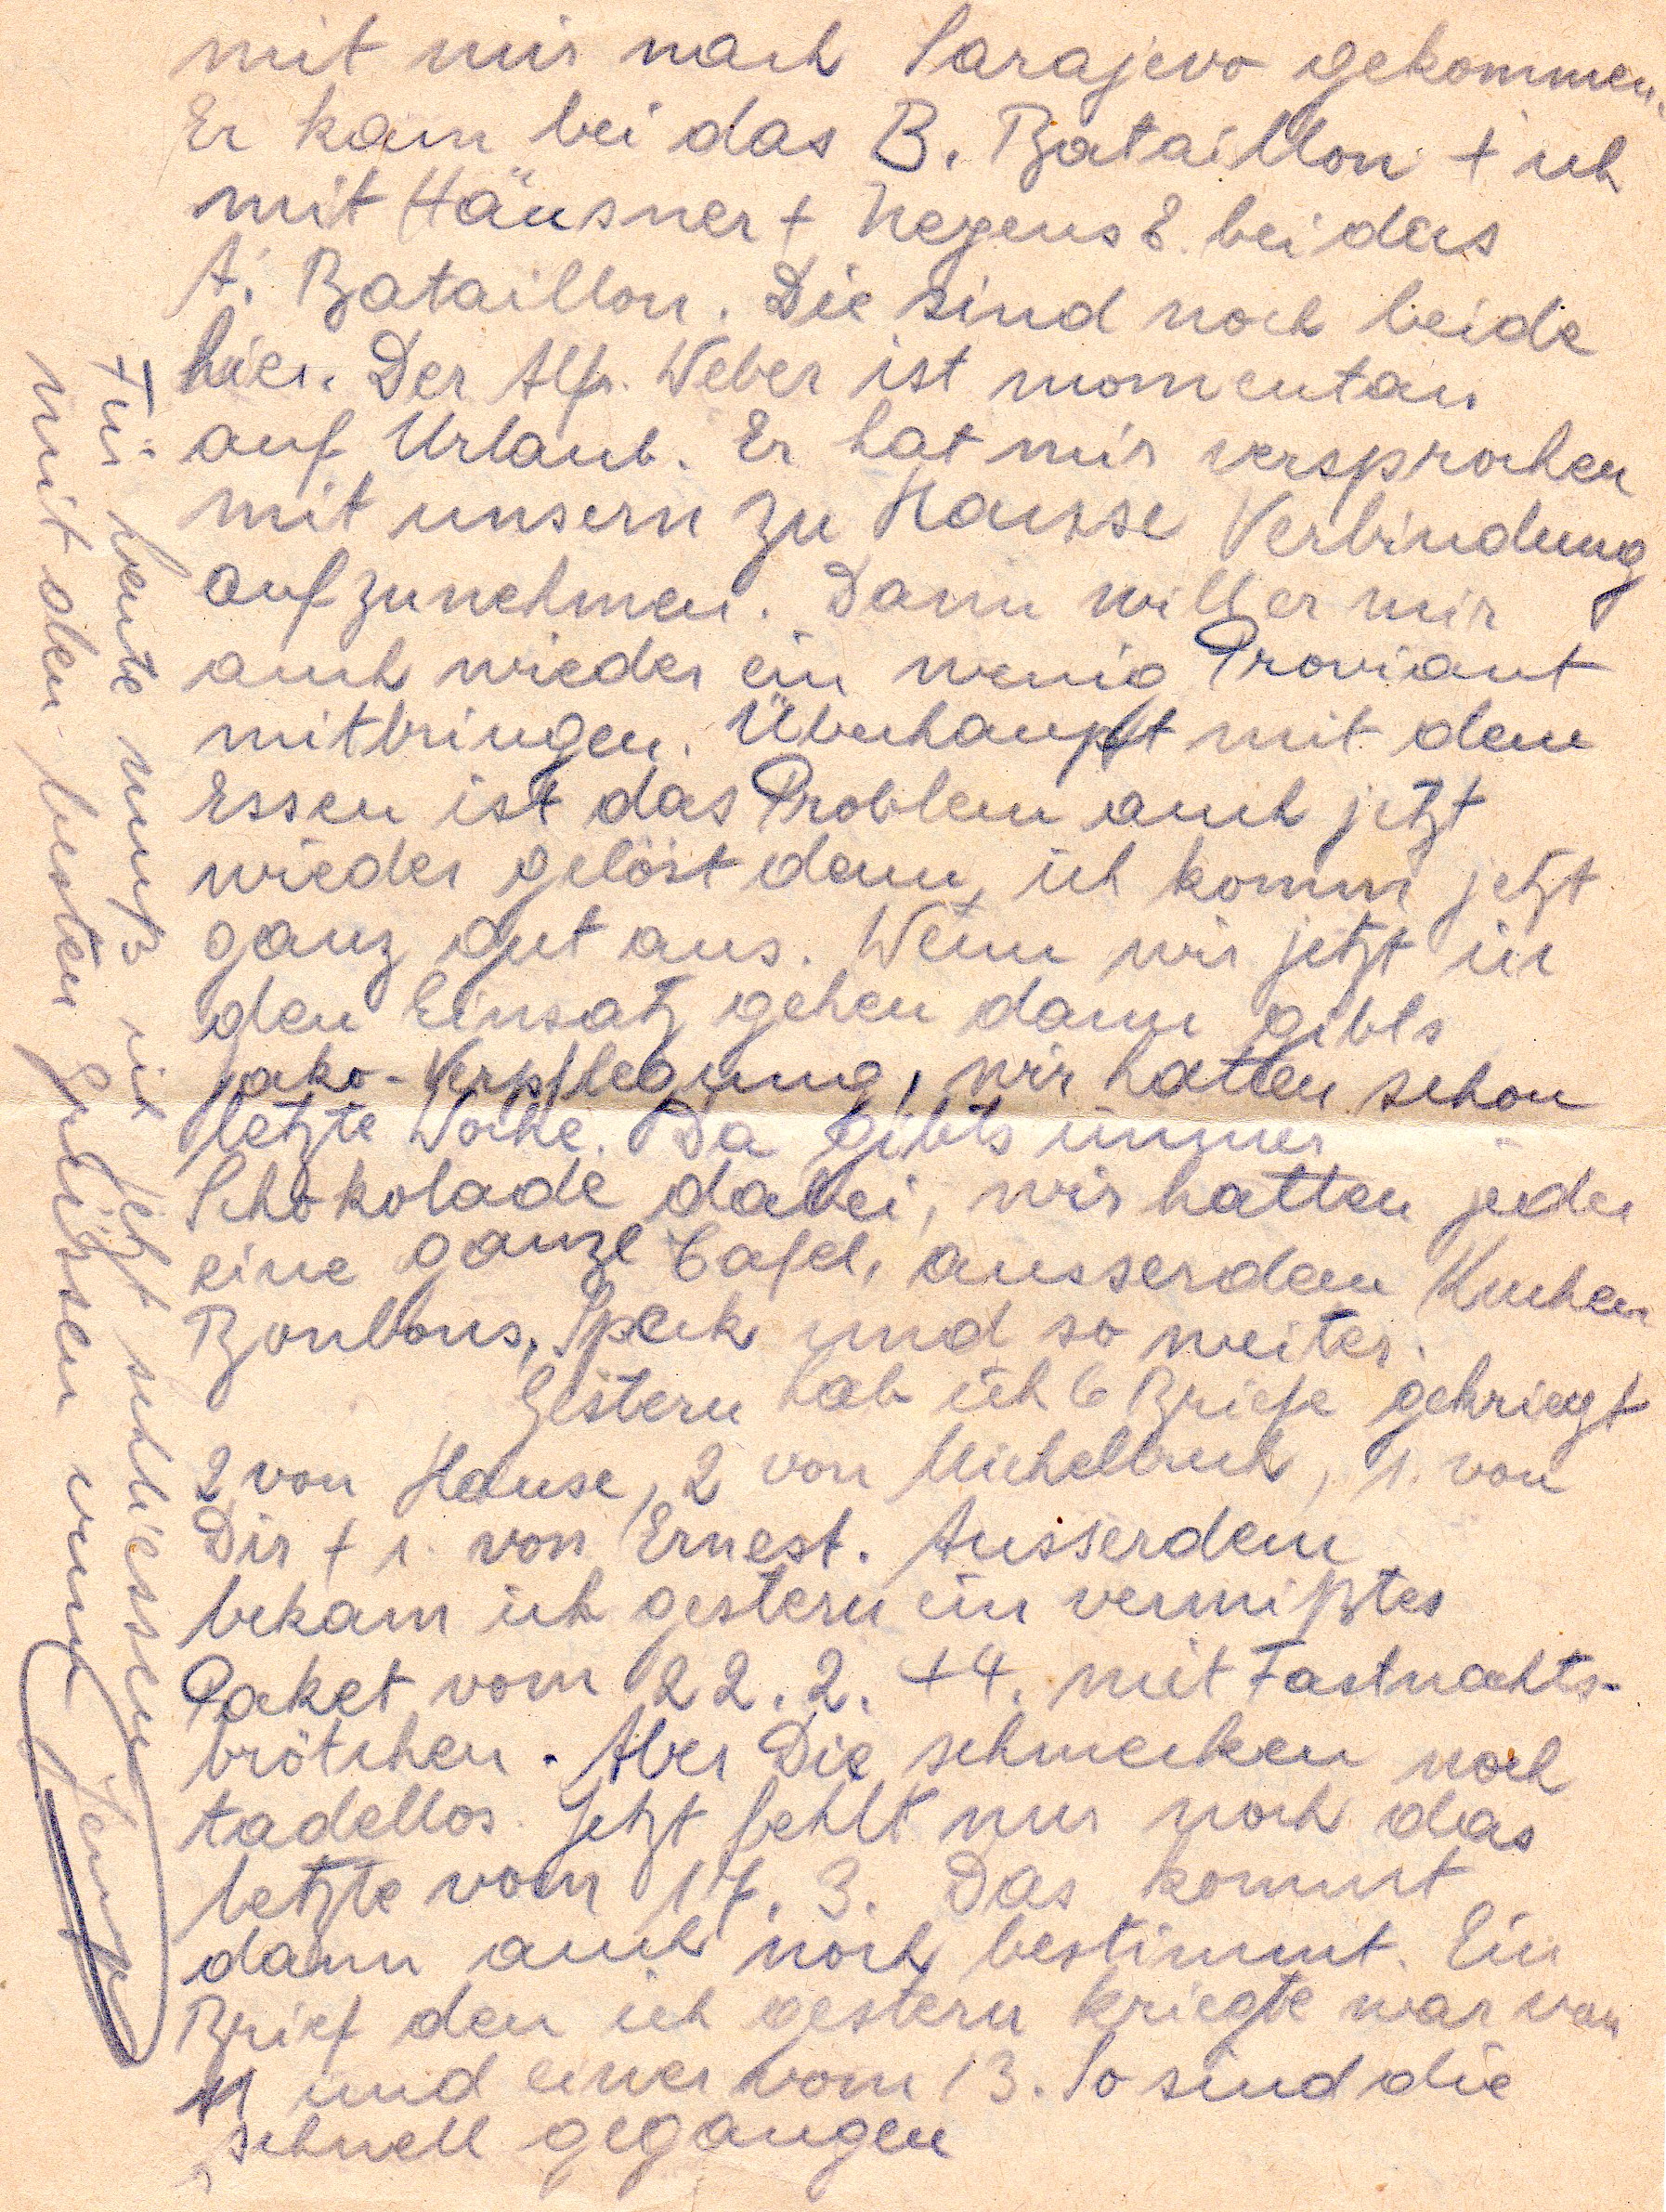 mit mir nach Sarajevo gekommen.
Er kam bei das B. Bataillon + ich
mit Häusner + bei das
A. Bataillon. Die sind noch beide
hier. Der Alf. Weber ist momentan
auf Urlaub. Er hat mir versprochen
mit unsern zu Hausse Verbindung
aufzunehmen. Dann will er mir
auch wieder ein wenig Proviant
mitbringen. Überhaupt mit dem
Essen ist das Problem auch jetzt
wieder gelöst denn, ich komm jetzt
ganz gut aus. Wenn wir jetzt in
den Einsatz gehen dann gibts
jako-Verpflegung, wir hatten schon
letzte Woche. Da gibts immer
Schokolade dabei, wir hatten jeder
eine ganze Tafel, ausserdem Kuchen
Bonbons, Speck und so weiter.
Gestern hab ich 6 Briefe gekriegt
2 von Hause, 2 von Michelbuch, 1. von
Dir + 1. von Ernest. Ausserdem
bekam ich gestern ein vermißtes
Paket vom 22. 2. 44. mit Fastnachts-
brötchen. Aber Die schmecken noch
tadellos. Jetzt fehlt nur noch das
letzte vom 17. 3. Das kommt
dann auch noch bestimmt. Ein
Brief den ich gestern kriegte war vom
11 und einer vom 13. So sind die
schnell gegangen
Für heute muß ich jetzt schliessen
mit den besten Grüssen